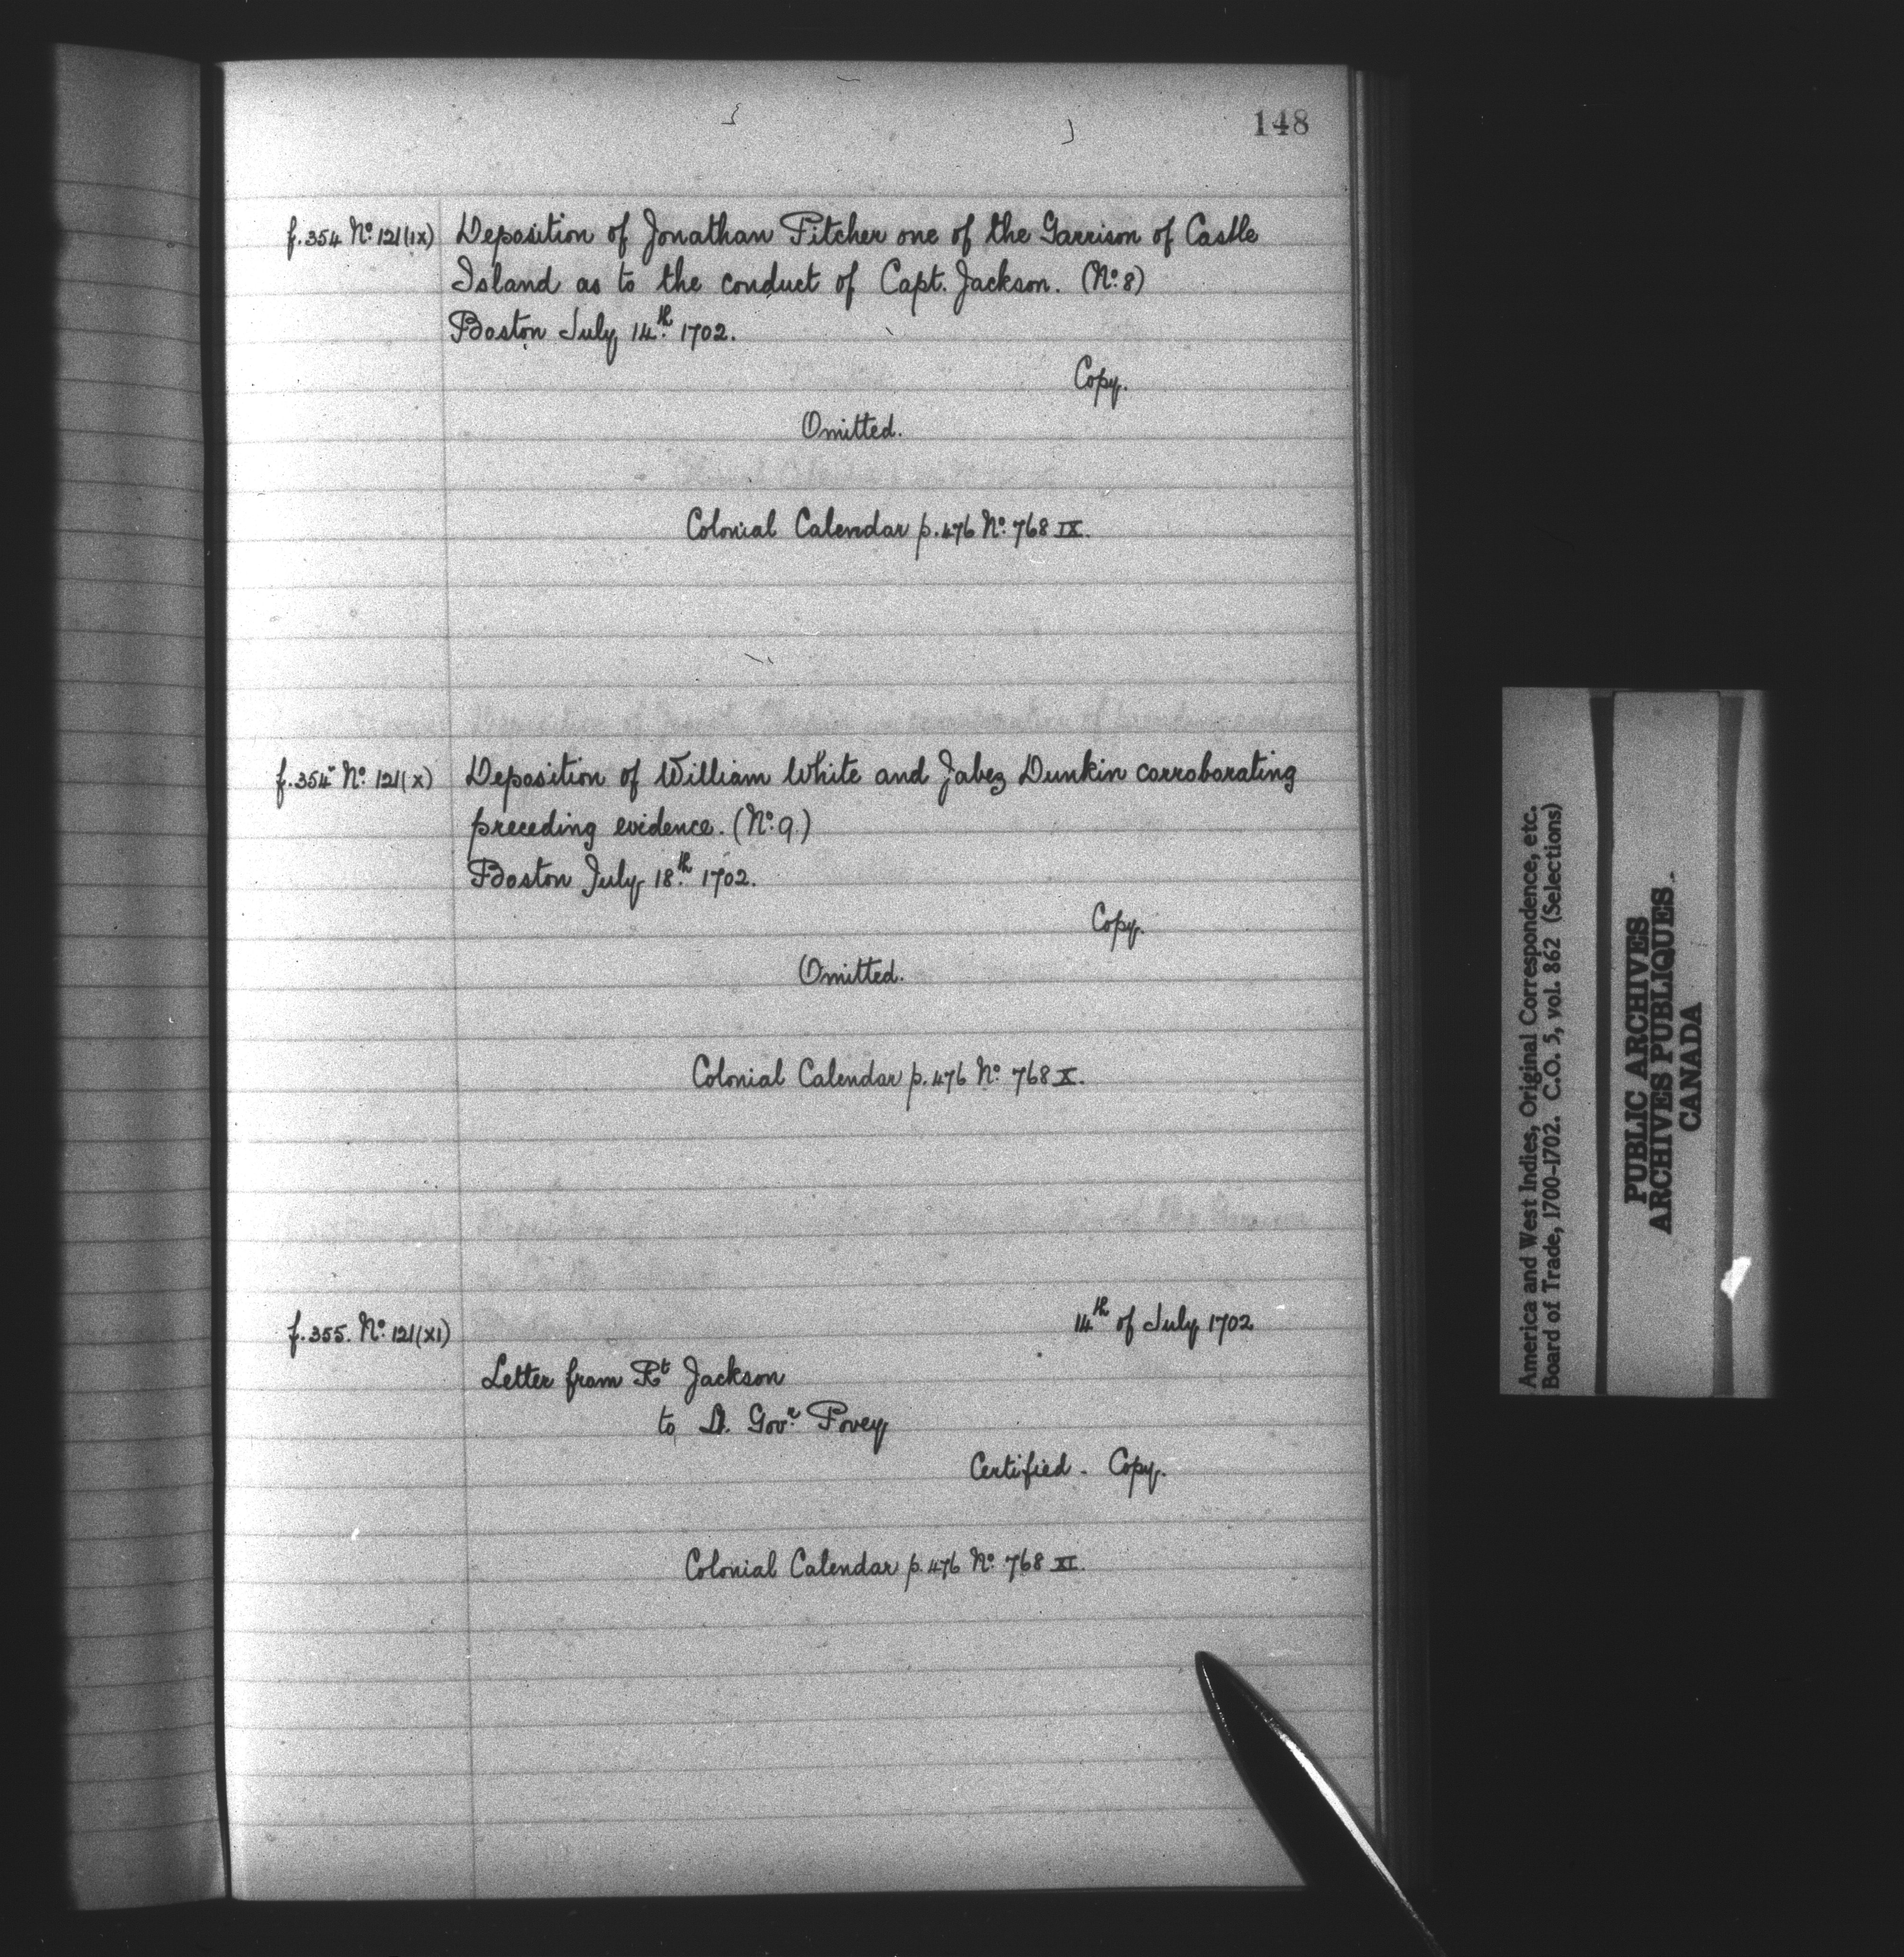 148
f. 354 No. 121 (IX) Deposition of Jonathan Pitcher one of the Garrison of Castle
Island as to the conduct of Capt. Jackson. (No. 8)
Boston July 14th 1702.
Copy.
Omitted.
Colonial Calendar p. 476 No. 768 IX.
f. 354v No. 121 (X) Deposition of William White and Jabez Dunkin corroborating
preceding evidence. (No. 9)
Boston July 18th 1702.
Copy.
Omitted.
Colonial Calendar p. 476 No. 768 X.
f. 355. No. 121 (XI) 14th of July 1702
Letter from Rt Jackson
to Lt. Govr Povey
Certified - Copy.
Colonial Calendar p. 476 No. 768 XI.
America and West Indies, Original Correspondence, etc.
Board of Trade, 1700-1702. C.O. 5, vol. 862 (Selections)
PUBLIC ARCHIVES
ARCHIVES PUBLIQUES
CANADA